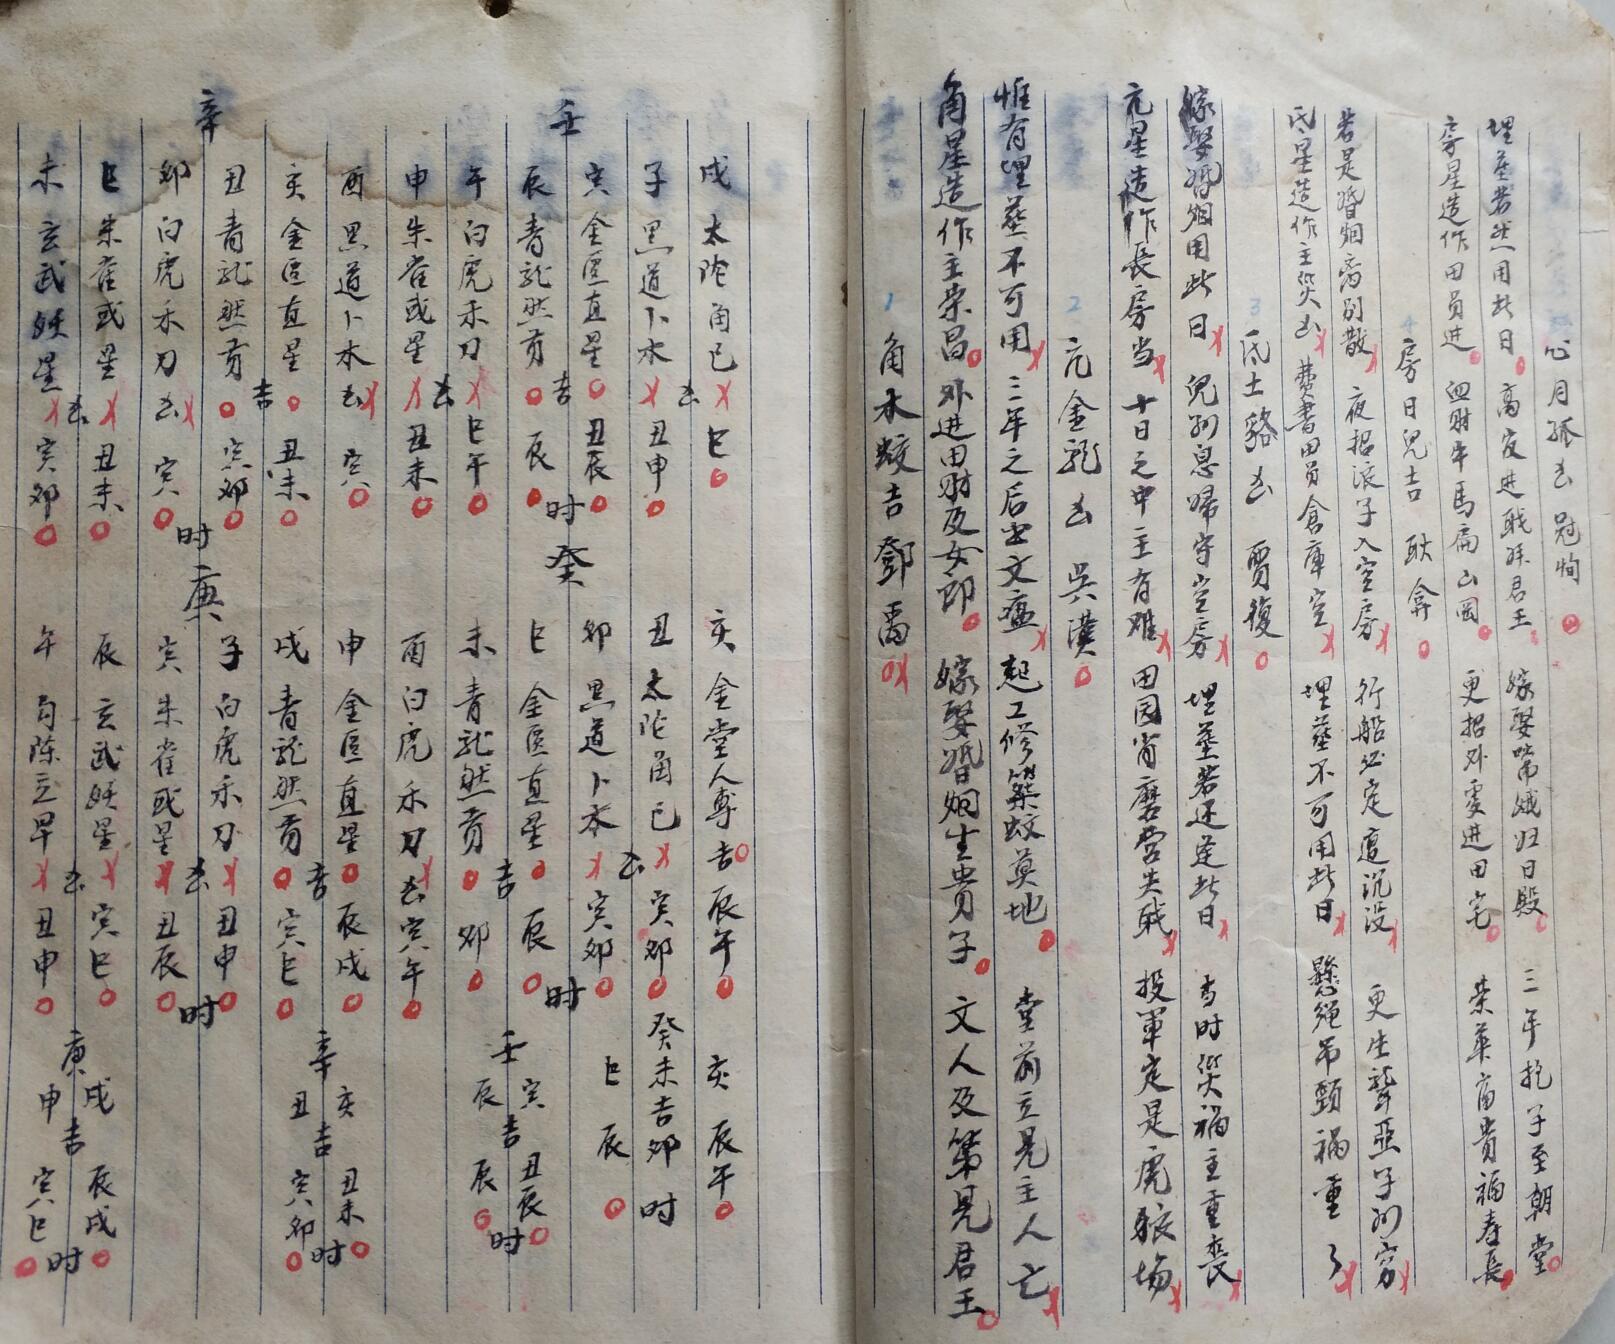 角木蛟吉 鄧禹
角星造作主荣昌 外进田財及女郎 嫁娶婚姻生貴子 文人及第見君王
惟有埋葬不可用 三年之后主文瘟 起工修築蚊莫地 堂前立見主人亡
2 亢金龍凶 吳漢
亢星造作長房当 十日之中主有难 田园省磨营失戝 投軍定是虎狼场
嫁娶婚姻用此日 兒孙息婦守空房 埋葬若还逢此日 当时災禍主重喪
3 氐土貉凶 賈復
氐星造作主災凶 費書田员倉庫空 埋葬不可用此日 懸绳吊頸禍重
若是婚姻离别散 夜招浪子入空房 行船必定遭沉没 更生聾亞子孙穷
4 房日兔吉 耿弇
房星造作田员进 血財牛馬扁山岡 更招外處进田宅 荣華富貴福寿長
埋葬若然用此日 高官进戝拜君王 嫁娶嫦娥归日殿 三年抱子至朝堂
心月狐凶 冠恂
壬
戌 太陀角已 巳 亥 金堂人專吉 辰午 亥 辰午
子 黑道卜木 凶 丑申 丑 太陀角已 寅卯 癸未吉卯 时
寅 金匡直星 丑辰 卯 黑道卜本 凶 寅卯 巳 辰
辰 青龙然貢 吉 辰 时 癸 巳 金匡直星 辰 时 壬 寅 丑辰
午 白虎禾刀 巳午 未 青龙然貢 吉 卯 辰 吉 辰 时
申 朱雀或星 凶 丑未 酉 白虎禾刀 凶 寅午
酉 黑道卜木 凶 寅 申 金匡直星 辰戌 辛 亥 丑未
亥 金匡直星 丑未 戌 青龙然貢 吉 寅巳 丑 吉 寅卯 时
辛
丑 青龙然貢 吉 寅卯 子 白虎禾刀 丑申
卯 白虎禾刀 凶 寅 时 庚 寅 朱雀或星 凶 丑辰 时
巳 朱雀或星 丑未 辰 玄武妖星 寅巳 庚 戌 辰戌
未 玄武妖星 凶 寅卯 午 勾陈立早 凶 丑申 申 吉 寅巳 时